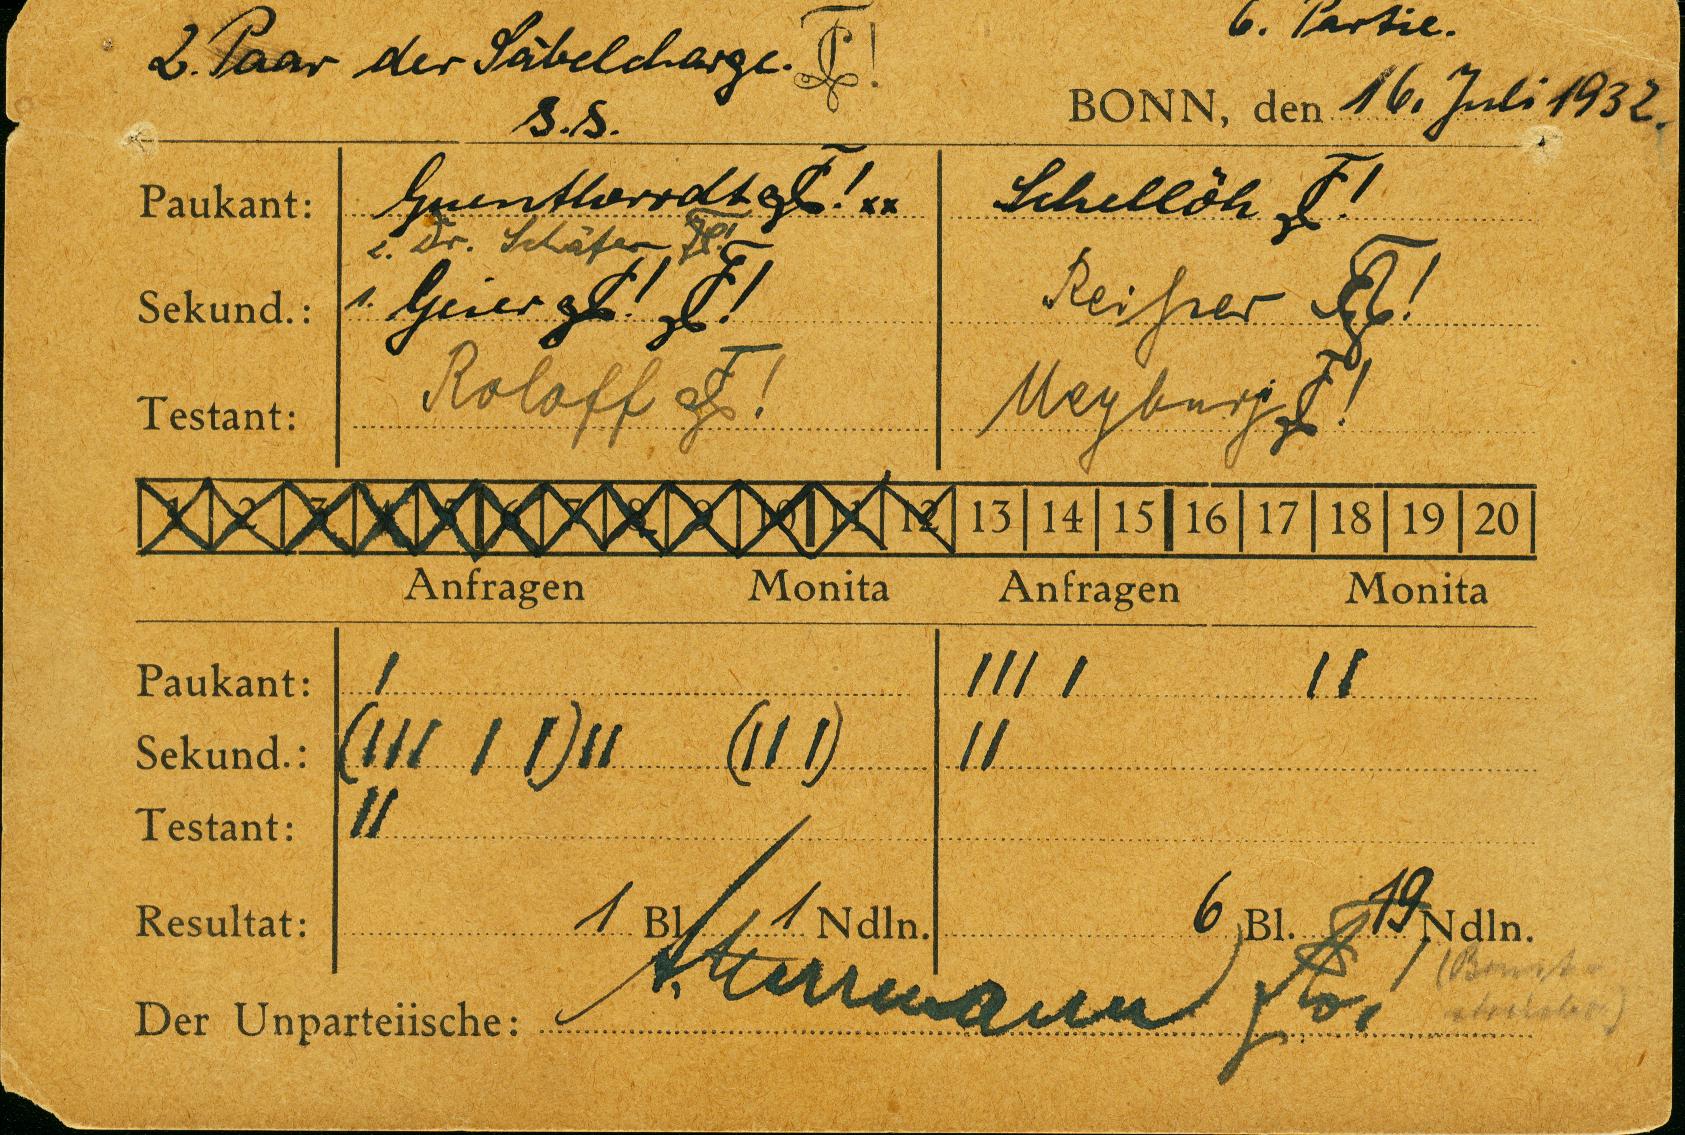 6. Partie.
2. Paar der Säbelcharge.
BONN, den 16. Juli 1932.
s.s.
Paukant: ! xx Schellöh !
2. Dr. Schäfer
Sekund.: 1. Geier ! ! !
Testant: Roloff ! Meyburg !
1 2 3 4 5 6 7 8 9 10 11 12 13 14 15 16 17 18 19 20
Anfragen Monita Anfragen Monita
Paukant: I III I II
Sekund.: (III I I) II (II I) II
Testant: II
Resultat: 1 Bl. 1 Ndln. 6 Bl. 19 Ndln.
Der Unparteiische: